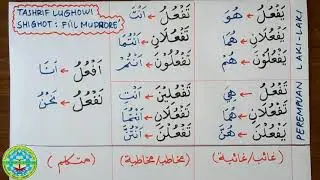 TASHRIF LUGHOWI
SHIGHOT : FI'IL MUDHORE
LAKI-LAKI
يَفْعُلُ ← هُوَ تَفْعُلُ ← اَنْتَ
يَفْعُلَانِ ← هُمَا تَفْعُلَانِ ← اَنْتُمَا
يَفْعُلُوْنَ ← هُمْ تَفْعُلُوْنَ ← اَنْتُمْ اَفْعُلُ ← اَنَا
PEREMPUAN
تَفْعُلُ ← هِيَ تَفْعُلِيْنَ ← اَنْتِ نَفْعُلُ ← نَحْنُ
تَفْعُلَانِ ← هُمَا تَفْعُلَانِ ← اَنْتُمَا
يَفْعُلْنَ ← هُنَّ تَفْعُلْنَ ← اَنْتُنَّ
(غائب/غائبة) (مخاطب/مخاطبة) (متكلم)